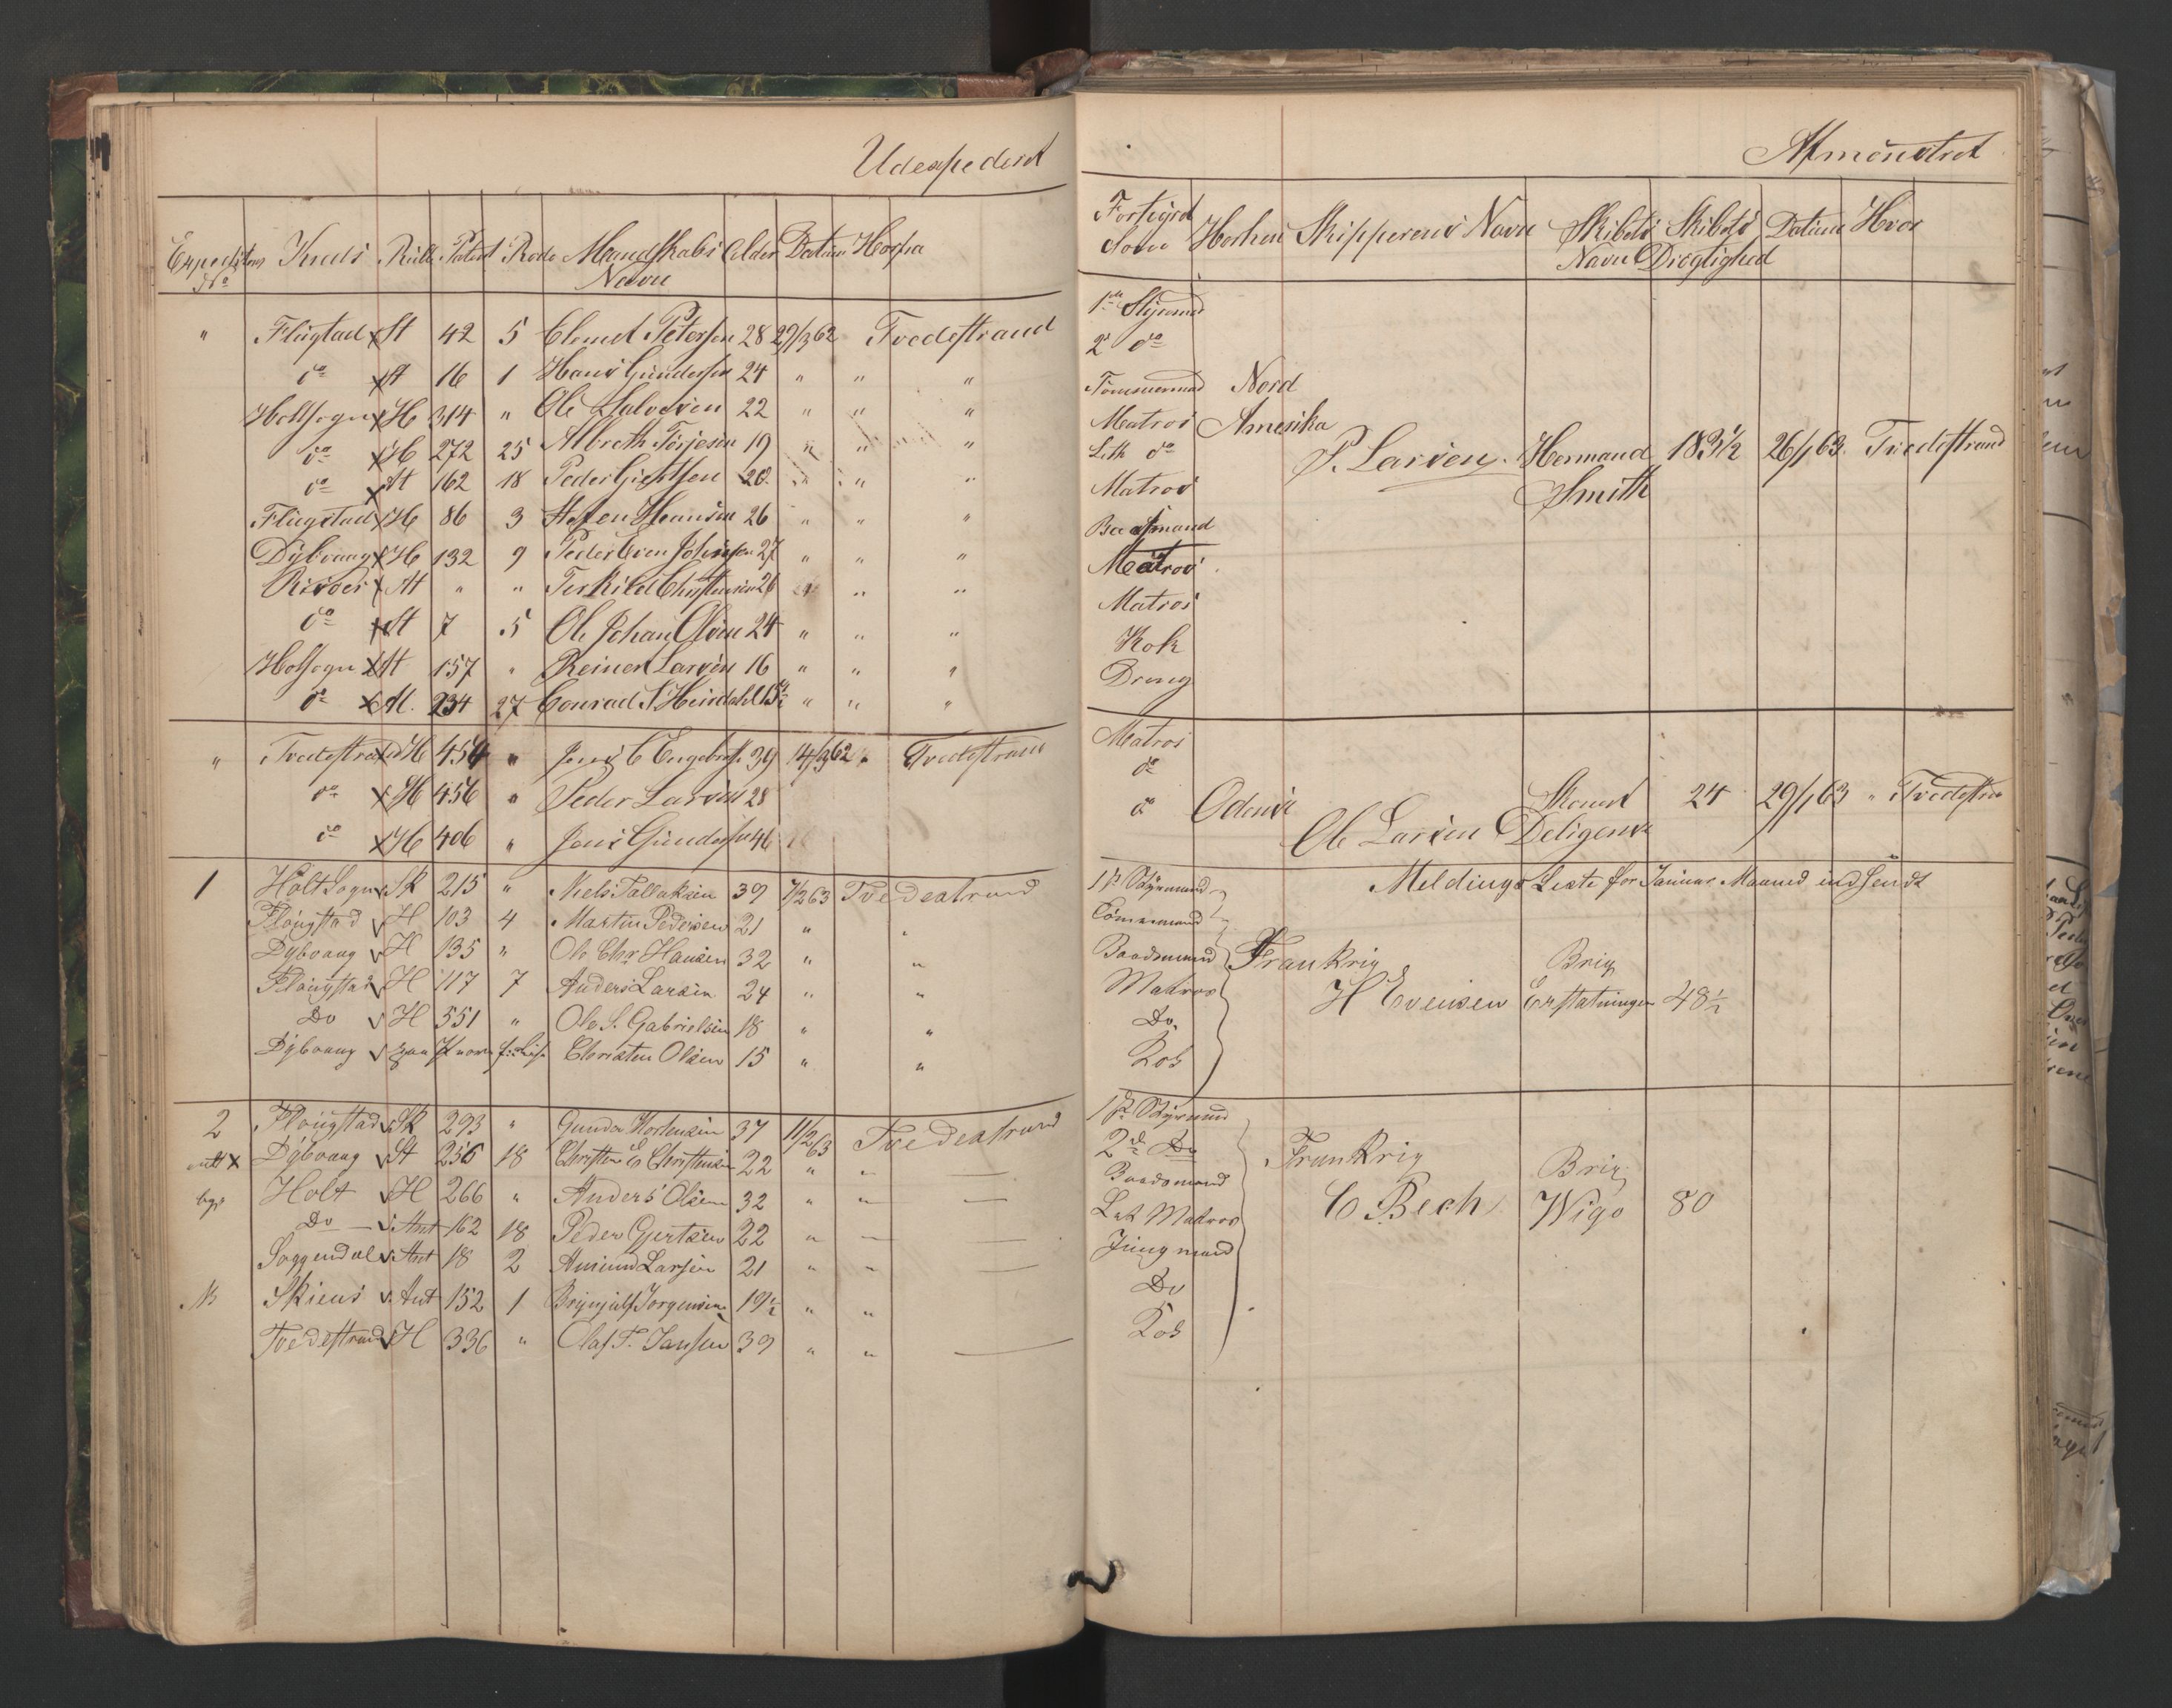 Udexpederet
Expeditions No Kreds Rulle Patent Rode Mandskabs Navn Alder Datum Hvorfra
" Flugstad x St 42 5 Petersen 28 29/3 62 Tvedestrand
do x St 16 1 Hans Gundersen 24 " " "
Holtsogn x H 314 " Ole Halvorsen 22 " " "
do x H 272 25 Albreth Terjesen 19 " " "
do x St 162 18 Peder Giertsen 20 " " "
Flugstad x H 86 3 Hansen 26 " " "
Dybvaag x H 132 9 Peder Even Johnsen 27 " " "
Risöer x St " " Terkild Christensen 26 " " "
do x St 7 5 Ole Johan Olsen 24 " " "
Holtsogn x St 157 " Reiner Larsen 16 " " "
do x St. 234 27 Conrad S Heirdahl 15½ " " "
" Tvedestrand x H 454 " Jens C Engebretsen 39 14/3 62 " Tvedestrand
do x H 456 " Peder Larsen 28
do x H 406 " Jens Gundersen 46
1 Holt Sogn v Sk 215 " Niels Tallaksen 39 7/2 63 Tvedestrand
Flougstad v H 103 4 Martin Pedersen 21 " "
Dybvaag v H 135 " Ole Chr. Hansen 32 " "
Flougstad v H 117 7 Anders Larsen 24 " "
Do v H 551 " Ole S. Gabrielsen 18 " "
Dybvaag v Christen Olsen 15 " "
2 Flougstad v Sk 293 " Gunder Mortensen 37 11/2 63 Tvedestrand
x Dybvaag v St 256 18 Christen E Christensen 22 " "
Holt v H 266 " Anders Olsen 32 " "
Do v Ant 162 18 Peder Gjertsen 22 " "
Soggendal v Ant 18 2 Amund Larsen 21 " "
Skiens v Ant 152 1 Brynjulf Jorgensen 19½ " "
Tvedestrand v H 336 " Olaf T. Jansen 39 " "
Afmönstret
Forhyred Som Hvorhen Skipperens Navn Skibets Navn Skibets Drægtighed Datum Hvor
1ste Styrmand
2 do
Tömmermand Nord
Matros Amerika
Let do P. Larsen Hermand Smith 183½ 26/1 63. Tvedestrand
Matros
Baadsmand
Matros
Matros
Kok
Dreng
Matros
do
do Odense Ole Larsen Skonert Deligense 24 29/1 63 " Tvedestrand
1ste Styrmand Meldings Liste for Januar Maaned indsendt
Tömmermand
Baadsmand Frankrig Brig
Matros H Evensen Erstatningen 48½
Do.
Kok
1ste Styrmand
2den Do Frankrig
Baadsmand Brig
Let Matros C Bech Wigo 80
Jungmand
Do
Kok